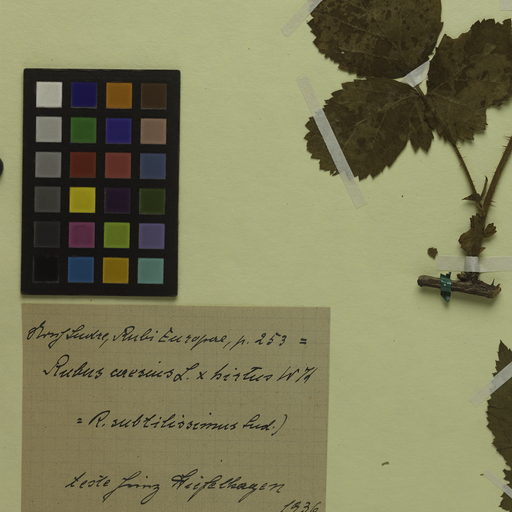 Sudre, Rubi Europae, p. 253 =
Rubus caesius L. x hirtus W K
= R. subtilissimus Sud.)
teste
1936